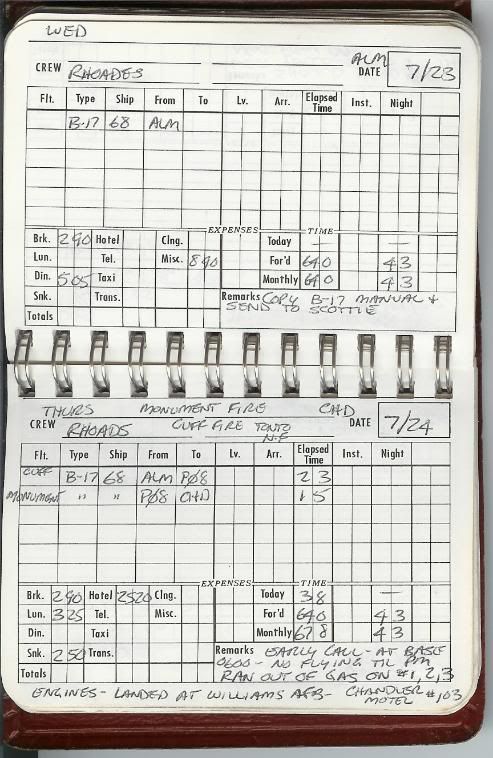 WED
CREW RHOADES ALM DATE 7/23
Flt. Type Ship From To Lv. Arr. Elapsed Time Inst. Night
B-17 68 ALM
EXPENSES TIME
Brk. 290 Hotel Clng. Today —
Lun. Tel. Misc. 890 For'd 640 43
Din. 505 Taxi Monthly 640 43
Snk. Trans. Remarks COPY B-17 MANUAL &
Totals SEND TO SCOTTIE
THURS MONUMENT FIRE CHD
CREW RHOADS CUFF FIRE TONTO N.F. DATE 7/24
Flt. Type Ship From To Lv. Arr. Elapsed Time Inst. Night
CUFF B-17 68 ALM PØ8 2 3
MONUMENT " " PØ8 CHD 1 5
EXPENSES TIME
Brk. 290 Hotel 2520 Clng. Today 38 —
Lun. 325 Tel. Misc. For'd 640 43
Din. Taxi Monthly 678 43
Snk. 250 Trans. Remarks EARLY CALL - AT BASE
0600 - NO FLYING TIL PM
Totals RAN OUT OF GAS ON #1, 2, 3
ENGINES - LANDED AT WILLIAMS AFB - CHANDLER MOTEL #103